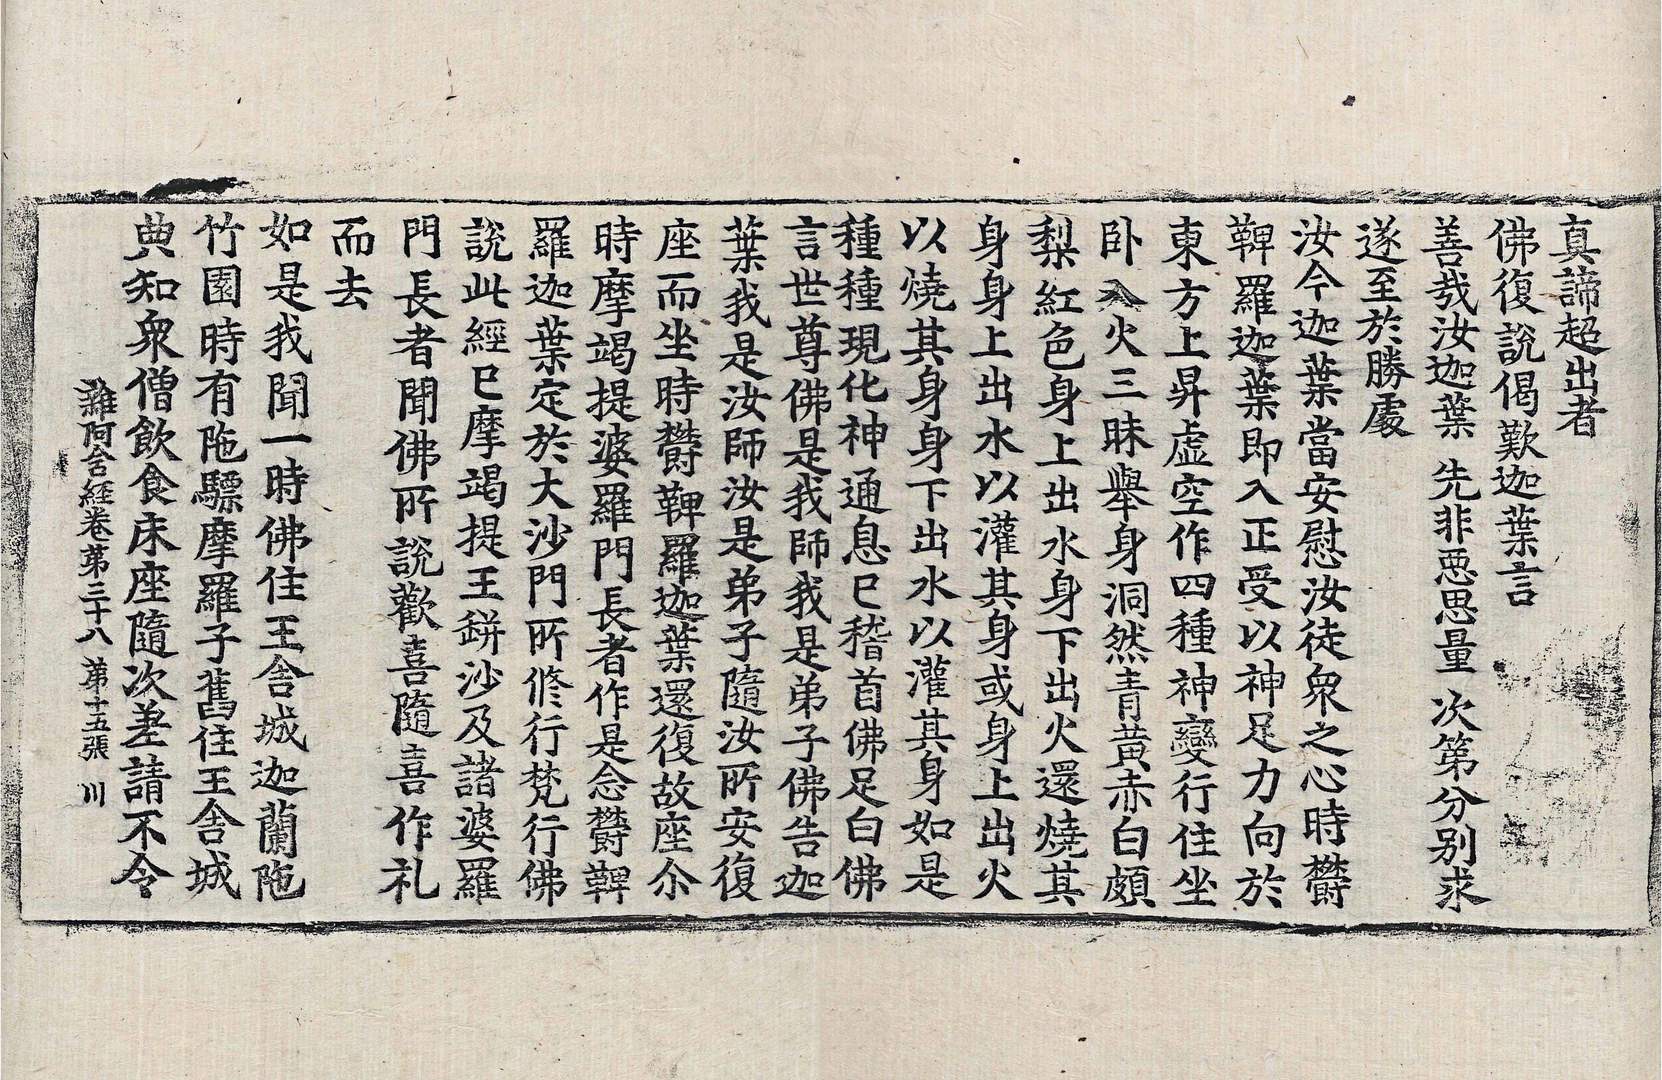 真諦超出者
佛復說偈歎迦葉言
善哉汝迦葉 先非惡思量 次第分別求
遂至於勝處
汝今迦葉當安慰汝徒衆之心時欝
鞞羅迦葉即入正受以神足力向於
東方上昇虛空作四種神變行住坐
卧入火三昧舉身洞然青黃赤白頗
梨紅色身上出水身下出火還燒其
身身上出水以灌其身或身上出火
以燒其身身下出水以灌其身如是
種種現化神通息已稽首佛足白佛
言世尊佛是我師我是弟子佛告迦
葉我是汝師汝是弟子隨汝所安復
座而坐時欝鞞羅迦葉還復故座尒
時摩竭提婆羅門長者作是念欝鞞
羅迦葉定於大沙門所脩行梵行佛
說此經已摩竭提王缾沙及諸婆羅
門長者聞佛所說歡喜隨喜作礼
而去
如是我聞一時佛住王舍城迦蘭陁
竹園時有陁驃摩羅子舊住王舍城
典知衆僧飮食床座隨次差請不令
雜阿含經卷第三十八 第十五張 川